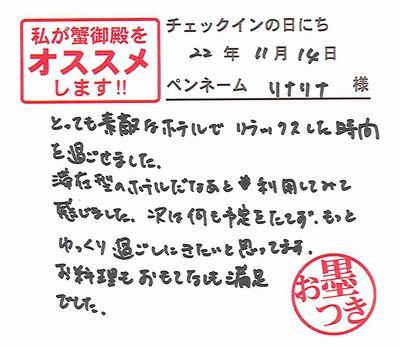 私が蟹御殿を
オススメ
します!!
チェックインの日にち
22年11月14日
ペンネーム りなりな 様
とっても素敵なホテルで リラックスした時間
を過ごせました。
滞在型のホテルだなあと利用してみて
感じました。次は何も予定をたてず、もっと
ゆっくり過ごしにきたいと思ってます。
お料理もおもてなしも満足
でした。
お墨つき